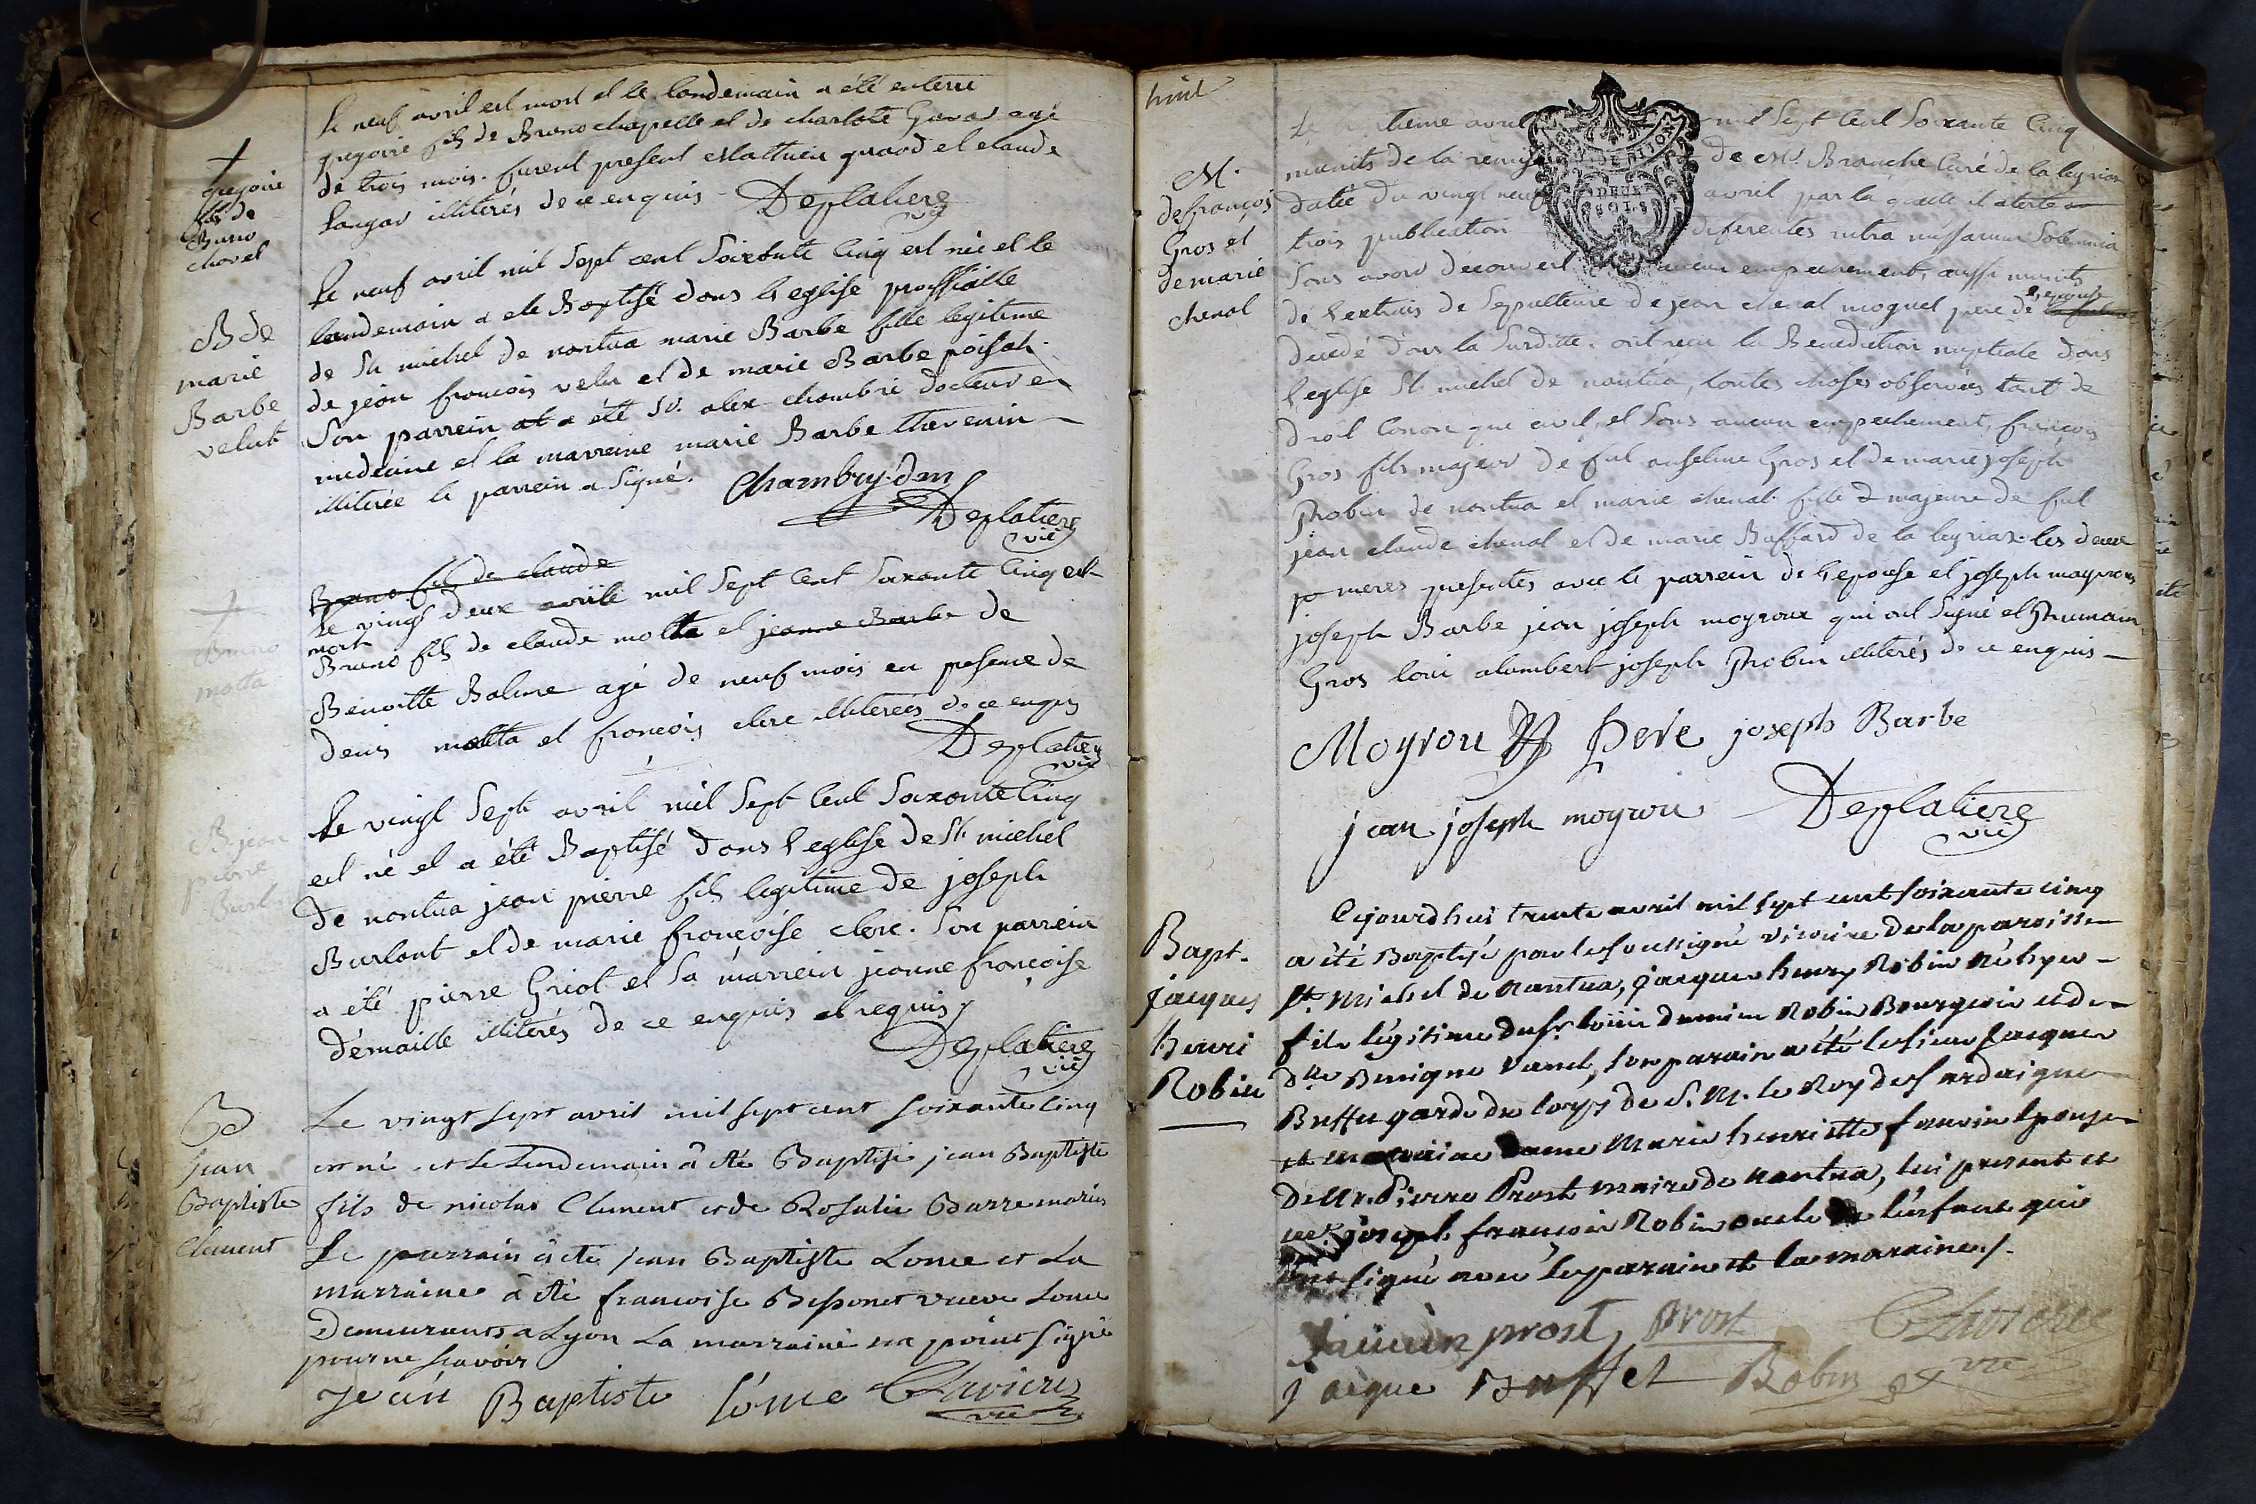 Le neuf avril est mort et le landemain a été enterré
gregoire fils de Bruno chapelle et de charlote Gavod agé
de trois mois. furent present Mathieu guaod et claude
langar illiterés de ce enquis Deplatiere
vic
+
gregoire
fils de
Bruno
chapel
Le neuf avril mil Sept cent Soixante Cinq est née et le
landemain a ete Baptisé dans l'eglise
de St michel de nantua marie Barbe fille legitime
de jean francois velu et de marie Barbe poisat.
Son parrein at a été Sr. alex chambre docteur en
medecine et la marreine marie Barbe thevenin
illiterée le parrein a Signé. Chambry d m
Deplatiere
vic
B de
marie
Barbe
velut
Bruno fils de claude
Le vingt deux avrile mil Sept Cent Soixante Cinq est
mort
Bruno fils de claude molta et jeanne Barbe de
Benoitte Balme agé de neuf mois en presence de
denis molta et francois clerc illiterées de ce enquis
Deplatiere
vic
+
Bruno
molta
Le vingt Sept avril mil Sept Cent Soixante Cinq
est né et a été Baptisé dans l'eglise de St michel
de nantua jean pierre fils legitime de joseph
Burlant et de marie francoise clerc. Son parrein
a été pierre Griot et Sa marrein jeanne francoise
démaille illiterés de ce enquis et requis
Deplatiere
vic
B jean
pierre
Le vingt sept avril mil sept cent soixante cinq
est né et le lendemain à été Baptisé jean Baptiste
fils de nicolas Clement et de Rosalie Barre mariés
Le parrain à été jean Baptiste Lome et La
marraine à été francoise Bessonet vueve Lome
Demeurants a Lyon La marraine na point signé
pour ne scavoir
Jean Baptiste Lome Clavieres
vic
B
jean
Baptiste
Clement
huit
Le avril mil Sept Cent Soixante Cinq
munits de la remise de Mr. Branche Curé de la leyriat
datée du vingt neuf avril par la quelle il ateste
trois publication diferentes intra missarum Solemnia
Sans avoir decouvert aucun empechement, aussi munits
de l'extrais de Sepulteure de jean chenal moquet pere de l'epouse
decedé dans la Surditte. ont recu la Benediction nuptiale dans
l'eglise St michel de nantua, toutes choses observées tant de
droit Canon que civil, et Sans aucun empechement, francois
Gros fils majeur de fut anselme Gros et de marie joseph
Robin de nantua et marie chenal fille majeure de fut
jean claude chenal et de marie Buffard de la leyriat. les deux
meres presentes avec le parrein de l'epouse et joseph
joseph Barbe jean joseph moyroux qui ont Signé et
Gros loui alombert joseph Robin illiterés de ce enquis
Moyrou Pere joseph Barbe
jean joseph moyrou Deplatiere
vic
M.
de françois
Gros et
de marie
chenal
Cejourd'hui trente avril mil sept cent soixante cinq
a été Baptisé par le soussigné vicaire de la paroisse
St. Michel de Nantua, jacques henry Robin né hyer
fils légitime du Sr. loüis Robin Bourgeois et de
dlle Benigne Vanel, son parain a été le sieur jacques
Buffet garde du Corps de S. M. le Roy de Sardaigne
et maraine dame Marie henriette épouse
de Mr. Pierre Prost maire de Nantua, lui present et
joseph françois Robin oncle de l'enfant qui
ont signé avec le parain et la maraine./.
prost, Prost Clavieres
jacque Buffet Robin vic
Bapt.
jacques
henri
Robin
DEUX
SOLS